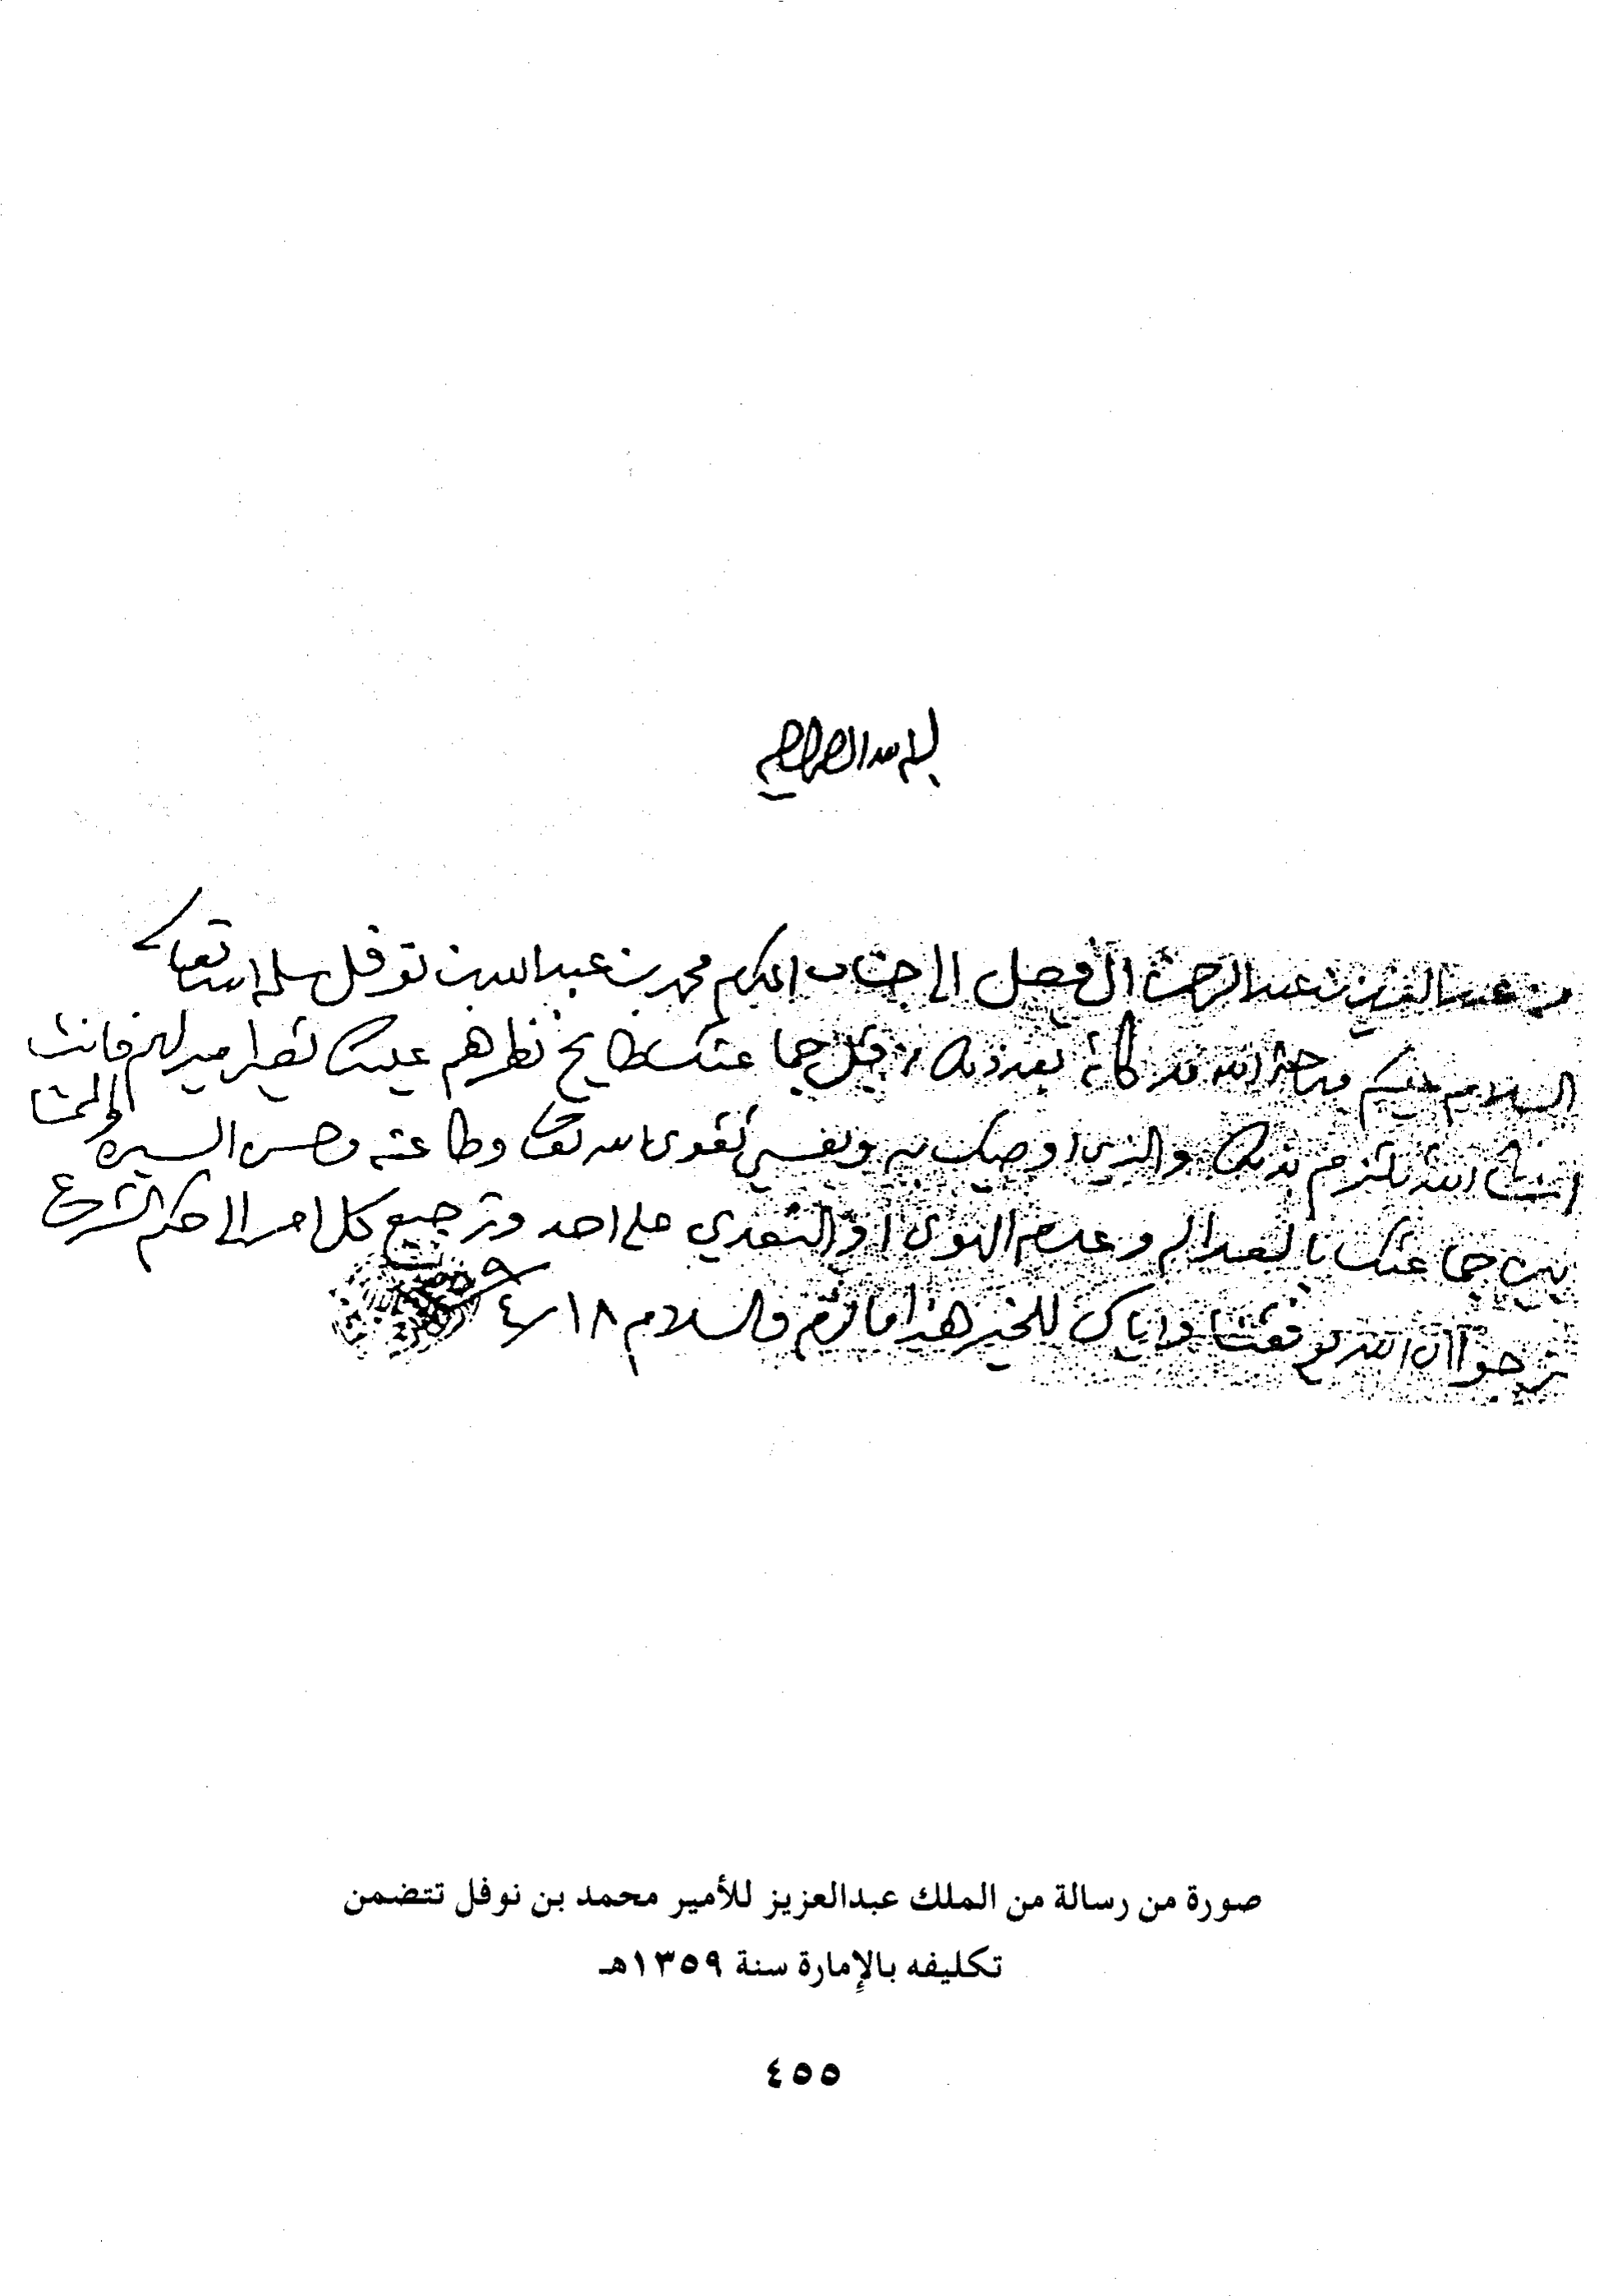 بسم الله الرحمن الرحيم
من عبد العزيز بن عبد الرحمن ال فيصل الى جناب المكرم محمد بن عبد الله بن نوفل سلمه الله تعالى
السلام عليكم ورحمة الله وبركاته بعد ذلك من قبل جماعتك طايح نظرهم عليك تصير امير لهم فانت
انشا الله تلتزم بذلك والذي اوصيك به ونفسي تقوى الله تعالى وطاعته وحسن السيره
بين جماعتك بالعدالة وعدم الهوى او التعدي على احد وترجيع كل امر الى حكم الشرع
نرجوا ان الله يوفقنا واياك للخير هذا ما لزم والسلام ١٨ ر ٤
صورة من رسالة من الملك عبدالعزيز للأمير محمد بن نوفل تتضمن
تكليفه بالإمارة سنة ١٣٥٩هـ
٤٥٥